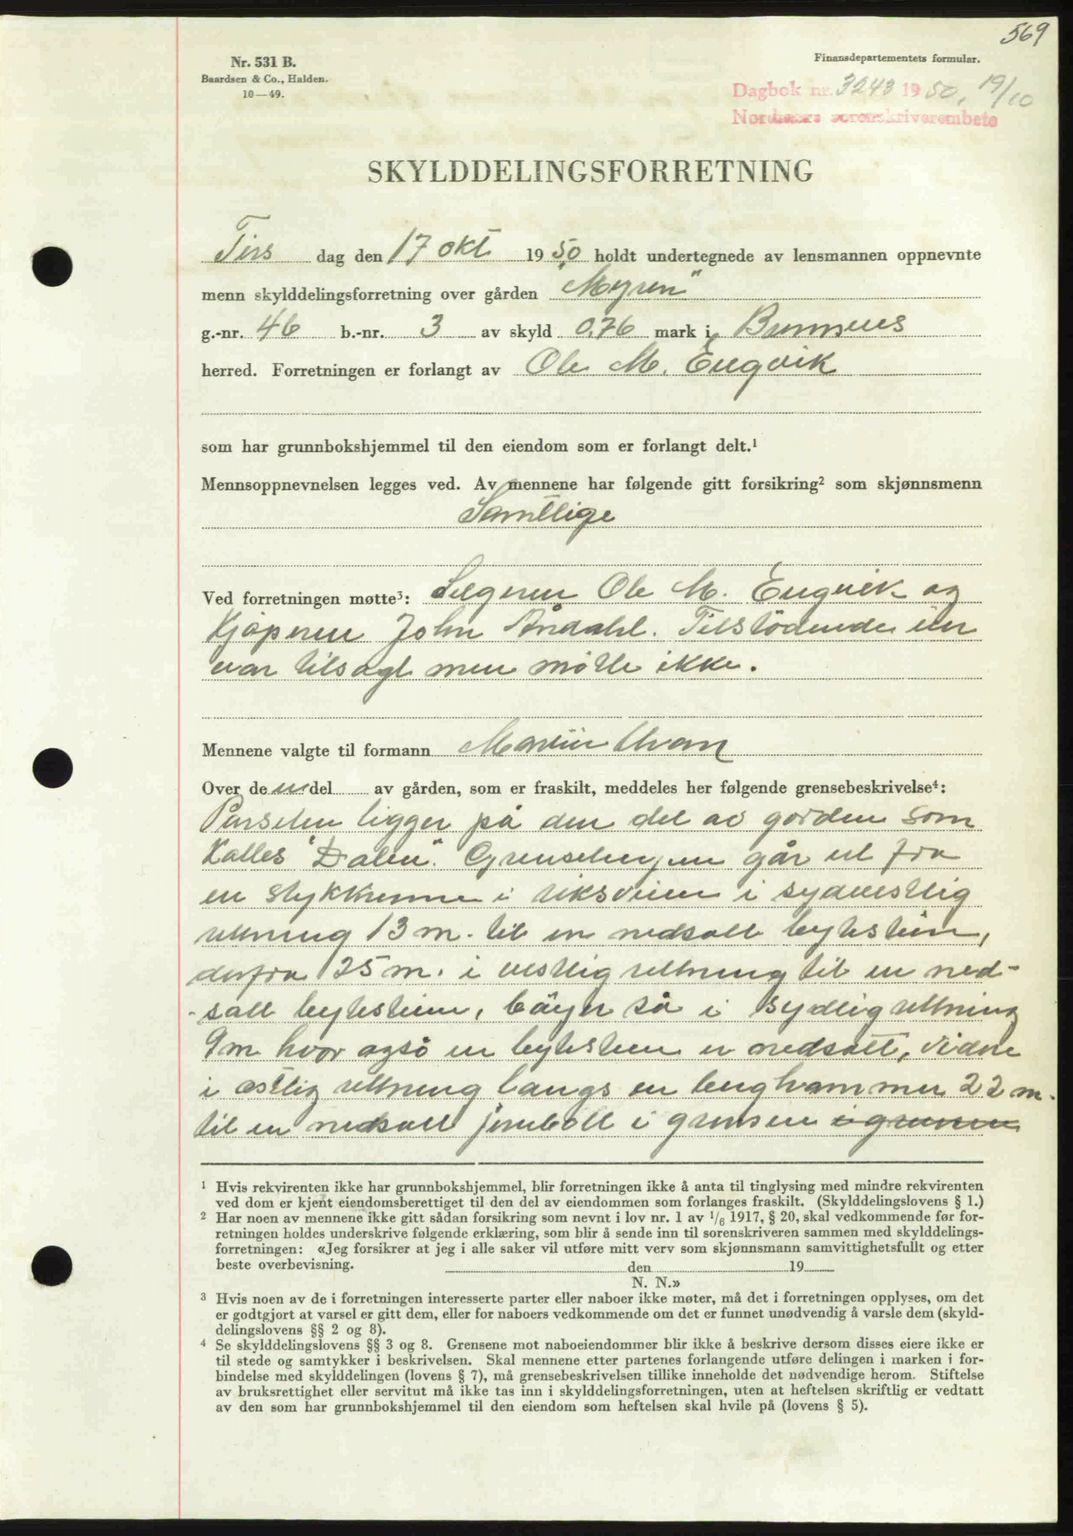 569
Nr. 531 B.
Baardsen & Co., Halden.
10—49.
Finansdepartementets formular.
Dagbok nr. 3243 1950, 19/10
Nordmøre sorenskriverembete
SKYLDDELINGSFORRETNING
Tirs dag den 17 okt 1950 holdt undertegnede av lensmannen oppnevnte
menn skylddelingsforretning over gården "Myren"
g.-nr. 46 b.-nr. 3 av skyld 0,76 mark i Bremsnes
herred. Forretningen er forlangt av Ole M. Engvik
som har grunnbokshjemmel til den eiendom som er forlangt delt.¹
Mennsoppnevnelsen legges ved. Av mennene har følgende gitt forsikring² som skjønnsmenn
Samtlige
Ved forretningen møtte³: Selgeren Ole M. Engvik og
Kjøperen John Årdahl. Tilstödende eier
var tilsagt men møtte ikke.
Mennene valgte til formann
Over de en del av gården, som er fraskilt, meddeles her følgende grensebeskrivelse⁴:
Parselen ligger på den del av gården som
kalles "Dalen". Grenselinjen går ut fra
en stykkrenne i riksveien i sydvestlig
retning 13 m. til en nedsatt bytestein,
derfra 25 m. i vestlig retning til en ned-
-satt bytestein, böyer så i sydlig retning
9 m hvor også en bytestein er nedsatt, videre
i østlig retning langs en berghammer 22 m.
til en nedsatt jernbolt i grensen i grensen
¹ Hvis rekvirenten ikke har grunnbokshjemmel, blir forretningen ikke å anta til tinglysing med mindre rekvirenten
ved dom er kjent eiendomsberettiget til den del av eiendommen som forlanges fraskilt. (Skylddelingslovens § 1.)
² Har noen av mennene ikke gitt sådan forsikring som nevnt i lov nr. 1 av 1/6 1917, § 20, skal vedkommende før for-
retningen holdes underskrive følgende erklæring, som blir å sende inn til sorenskriveren sammen med skylddelings-
forretningen: «Jeg forsikrer at jeg i alle saker vil utføre mitt verv som skjønnsmann samvittighetsfullt og etter
beste overbevisning. den 19
N. N.»
³ Hvis noen av de i forretningen interesserte parter eller naboer ikke møter, må det i forretningen opplyses, om det
er godtgjort at varsel er gitt dem, eller for naboers vedkommende om det er funnet unødvendig å varsle dem (skyld-
delingslovens §§ 2 og 8).
⁴ Se skylddelingslovens §§ 3 og 8. Grensene mot naboeiendommer blir ikke å beskrive dersom disses eiere ikke er
til stede og samtykker i beskrivelsen. Skal mennene etter partenes forlangende utføre delingen i marken i for-
bindelse med skylddelingen (lovens § 7), må grensebeskrivelsen tillike inneholde det nødvendige herom. Stiftelse
av bruksrettighet eller servitut må ikke tas inn i skylddelingsforretningen, uten at heftelsen skriftlig er vedtatt
av den som har grunnbokshjemmel til den eiendom som heftelsen skal hvile på (lovens § 5).